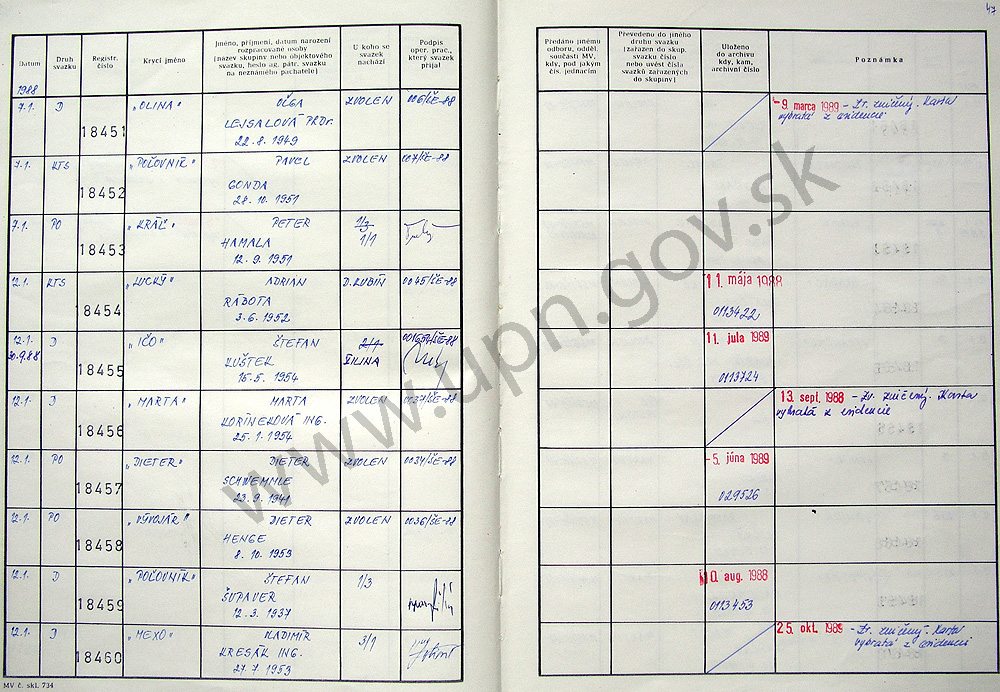 47
Datum
Druh svazku
Registr. číslo
Krycí jméno
Jméno, příjmení, datum narození rozpracované osoby (název skupiny nebo objektového svazku, heslo ag. pátr. svazku na neznámého pachatele)
U koho se svazek nachází
Podpis oper. prac., který svazek přijal
Předáno jinému odboru, odděl. součásti MV, kdy, pod jakým čís. jednacím
Převedeno do jiného druhu svazku (zařazen do skup. svazku číslo nebo uvést čísla svazků zařazených do skupiny)
Uloženo do archivu kdy, kam, archivní číslo
Poznámka
1988
7.1. D 18451 „OLINA" OĽGA ZVOLEN 006/ŠE-88
LEJSALOVÁ PRDr.
22.8.1949
-9. marca 1989 - Zv. zničený. Karta
vybratá z evidencie
7.1. KTS 18452 „POĽOVNÍK" PAVEL ZVOLEN 007/ŠE-88
GONDA
28.10.1951
7.1. PO 18453 „KRÁĽ" PETER 1/3
HAMALA 1/1
12.9.1951
12.1. KTS 18454 „LUCKÝ" ADRIAN D.KUBÍN 0045/ŠE-88
RÁBOTA
3.6.1952
11. mája 1988
0113422
12.1. D 18455 „IČO" ŠTEFAN 2/1
20.9.88 KUŠTEK ŽILINA
15.5.1954
11. jula 1989
0113724
12.1. D 18456 „MARTA" MARTA ZVOLEN 0037/ŠE-88
KORÍNEKOVÁ ING.
25.1.1954
13. sept. 1988 - Zv. zničený. Karta
vybratá z evidencie
12.1. PO 18457 „DIETER" DIETER ZVOLEN 0034/ŠE-88
SCHWEMMLE
23.9.1941
-5. júna 1989
029526
12.1. PO 18458 „VÝVOJÁR" DIETER ZVOLEN 0036/ŠE-88
HENGE
8.10.1953
12.1. D 18459 „POĽOVNÍK" ŠTEFAN 1/3
ŠUPAVER
12.3.1937
10. aug. 1988
0113453
12.1. D 18460 „MEXO" VLADIMÍR 3/1
KRESÁK ING.
27.7.1953
25. okt. 1988 - Zv. zničený. Karta
vybratá z evidencie
MV č. skl. 734
www.upn.gov.sk